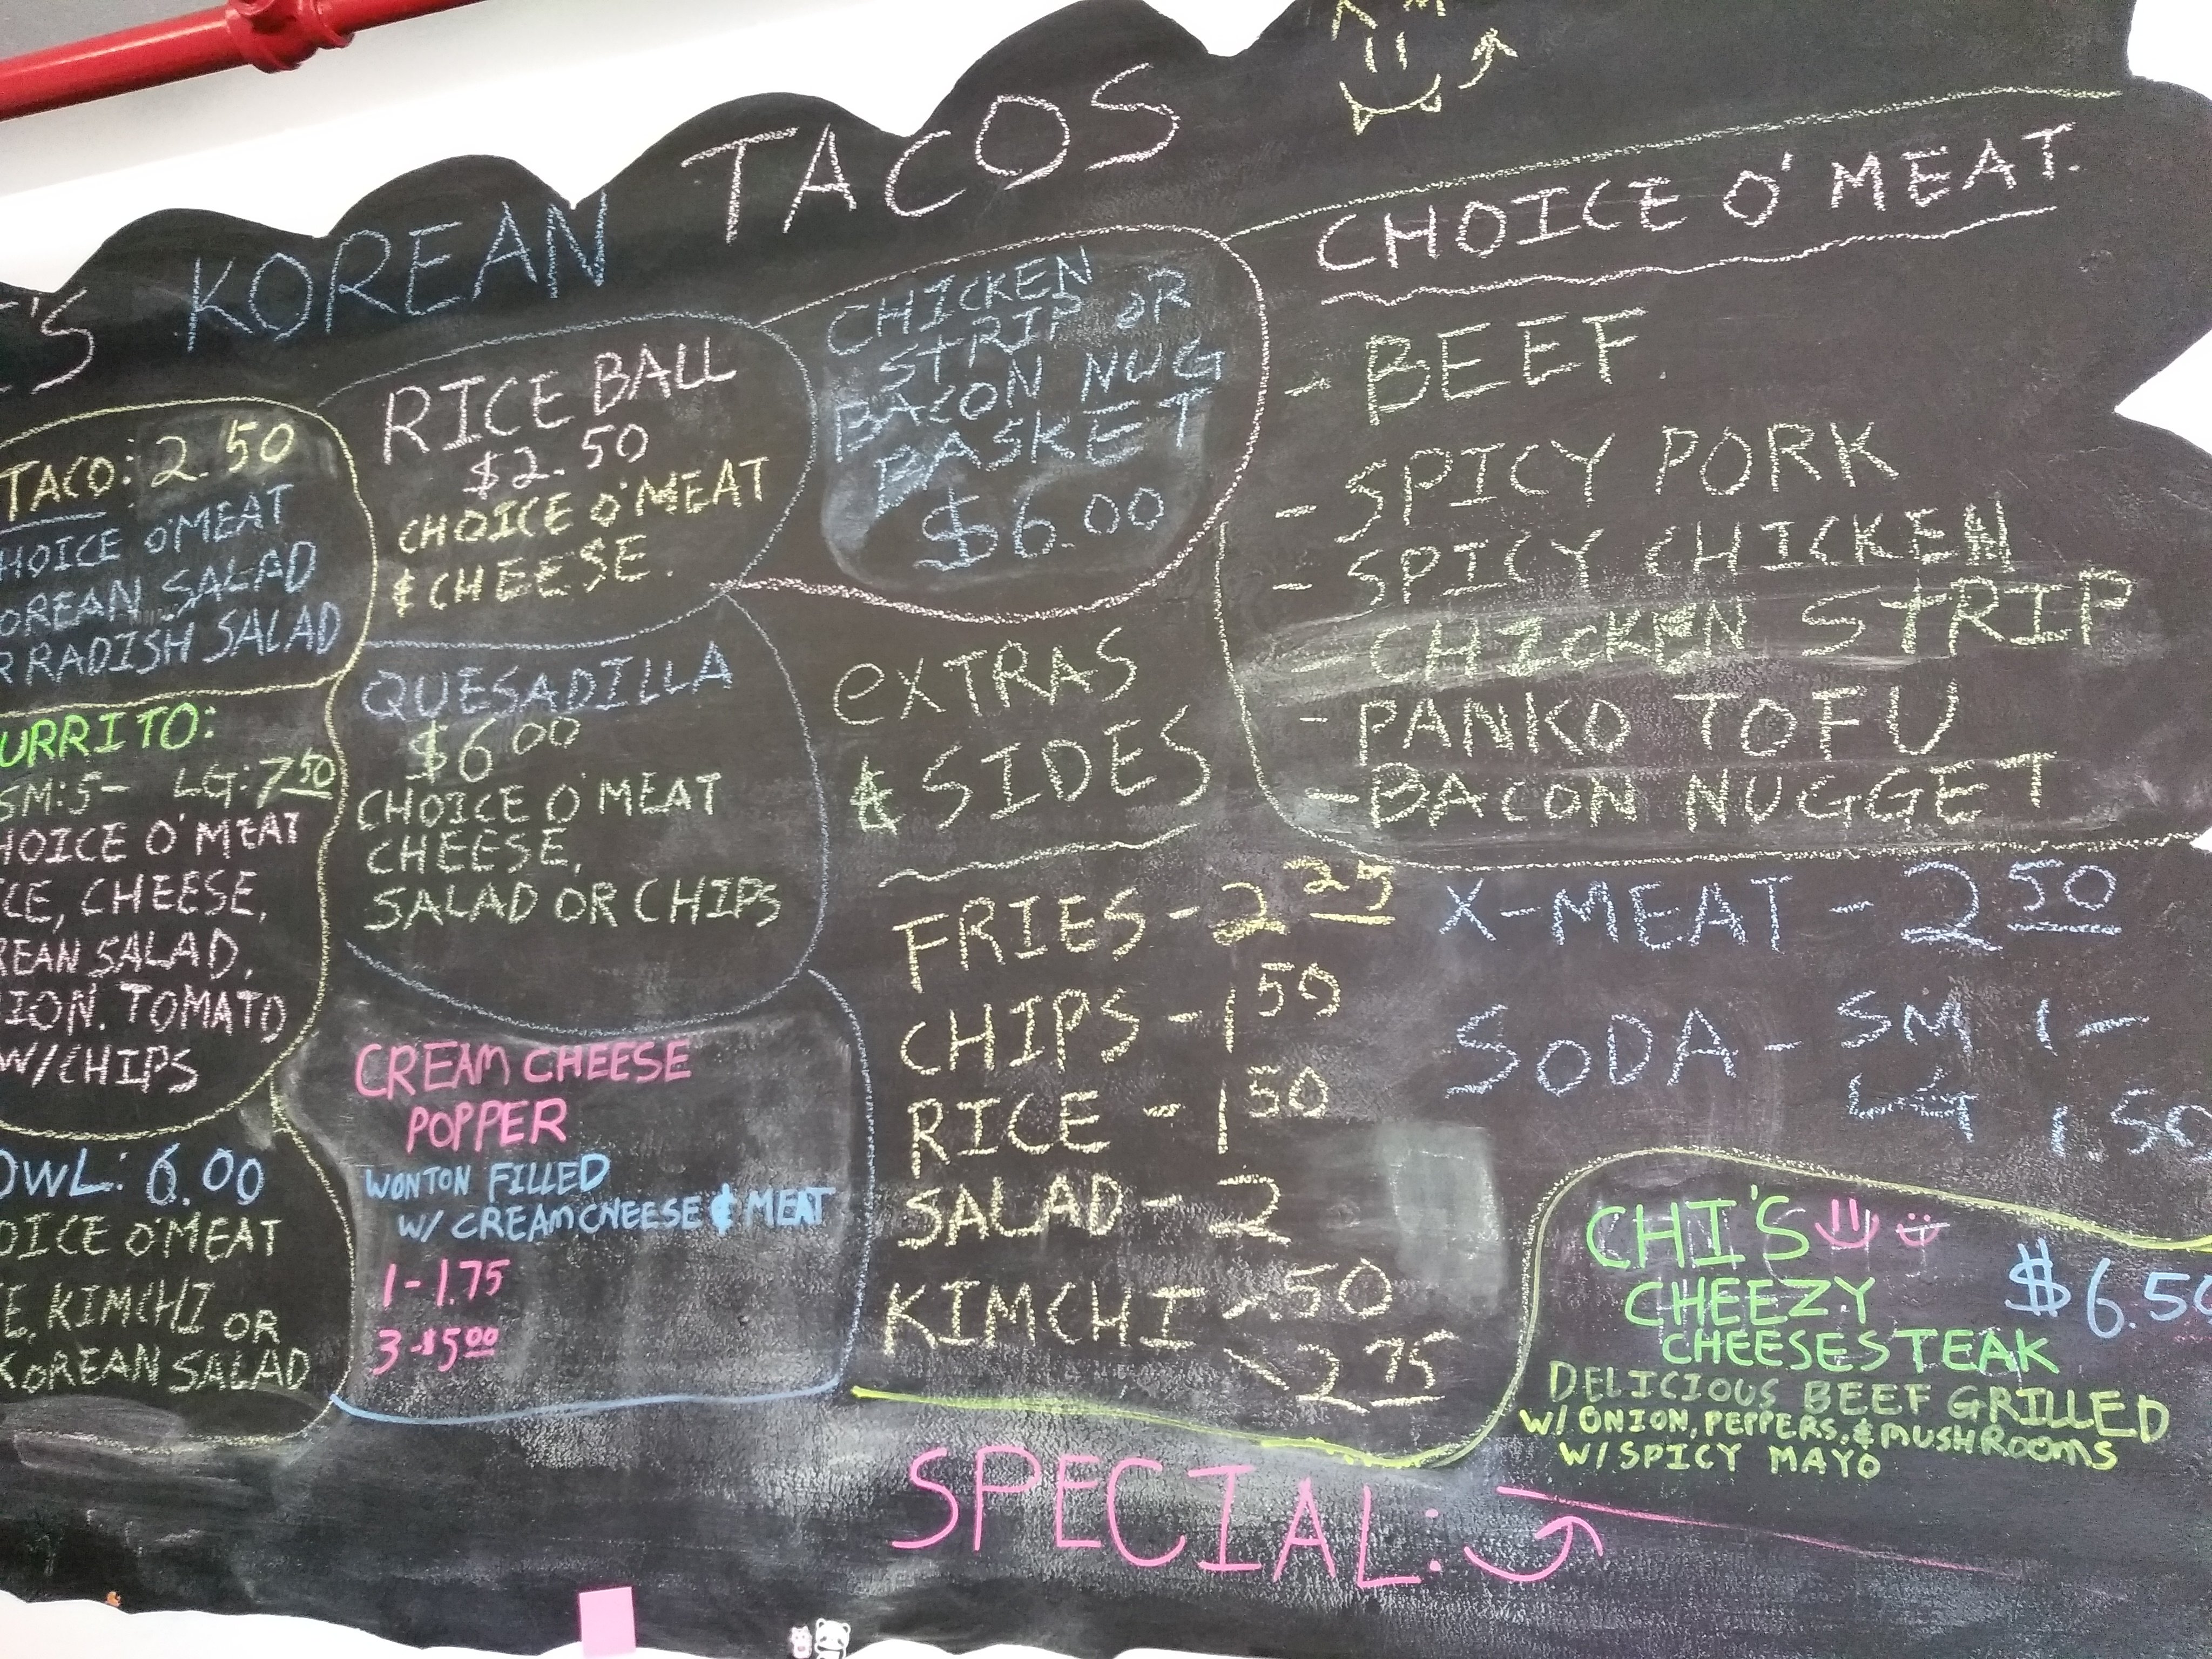 'S KOREAN TACOS
TACO: 2.50
HOICE O'MEAT
OREAN SALAD
R RADISH SALAD
URRITO:
SM: 5- LG: 7 50
HOICE O'MEAT
ICE, CHEESE,
REAN SALAD,
NION. TOMATO
W/CHIPS
OWL: 6.00
OICE O'MEAT
E, KIMCHI OR
KOREAN SALAD
RICE BALL
$2.50
CHOICE O'MEAT
& CHEESE.
QUESADILLA
$6 00
CHOICE O'MEAT
CHEESE,
SALAD OR CHIPS
CREAM CHEESE
POPPER
WONTON FILLED
W/ CREAMCHEESE & MEAT
1-1.75
3-$5.00
CHICKEN
STRIP OR
BACON NUG
BASKET
$6.00
EXTRAS
& SIDES
FRIES - 2 25
CHIPS - 1 50
RICE - 1 50
SALAD - 2
KIMCHI - .50
- 2 75
CHOICE O' MEAT.
- BEEF.
- SPICY PORK
- SPICY CHICKEN
- CHICKEN STRIP
- PANKO TOFU
- BACON NUGGET
X-MEAT - 2 50
SODA - SM 1-
LG 1.50
CHI'S
CHEEZY $6.50
CHEESESTEAK
DELICIOUS BEEF GRILLED
W/ ONION, PEPPERS, & MUSHROOMS
W/ SPICY MAYO
SPECIAL: